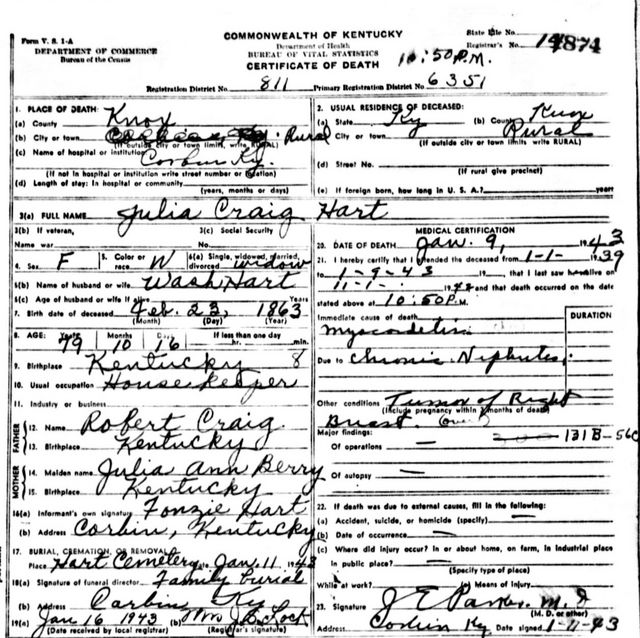 Form V. S. 1-A
DEPARTMENT OF COMMERCE
Bureau of the Census
COMMONWEALTH OF KENTUCKY
Department of Health
BUREAU OF VITAL STATISTICS
CERTIFICATE OF DEATH
State File No.
Registrar's No.
10:50 P.M.
Registration District No. 811 Primary Registration District No. 6351
1. PLACE OF DEATH:
(a) County Knox
(b) City or town Rural
(If outside city or town limits, write RURAL)
(c) Name of hospital or institution
Corbin Ky.
(If not in hospital or institution write street number or location)
(d) Length of stay: In hospital or community
(years, months or days)
2. USUAL RESIDENCE OF DECEASED:
(a) State Ky (b) County Knox
(c) City or town Rural
(If outside city or town limits write RURAL)
(d) Street No.
(If rural give precinct)
(e) If foreign born, how long in U. S. A.? years
3(a) FULL NAME Julia Craig Hart
3(b) If veteran,
Name war
3(c) Social Security
No.
4. Sex F
5. Color or
race W
6(a) Single, widowed, married,
divorced widow
6(b) Name of husband or wife Wash Hart
6(c) Age of husband or wife if alive Years
7. Birth date of deceased Feb. 23, 1863
(Month) (Day) (Year)
8. AGE: Years Months Days If less than one day
79 10 16 hr. min.
9. Birthplace Kentucky 8
10. Usual occupation House Keeper
11. Industry or business
FATHER
12. Name Robert Craig
13. Birthplace Kentucky
MOTHER
14. Maiden name Julia Ann Berry
15. Birthplace Kentucky
16(a) Informant's own signature Fonzie Hart
(b) Address Corbin, Kentucky
17. BURIAL, CREMATION, OR REMOVAL
Place Hart Cemetery Date Jan. 11 1943
18(a) Signature of funeral director Family burial
(b) Address Corbin Ky
19(a) Jan 16 1943 (b) Mrs J.B. Lock
(Date received by local registrar) (Registrar's signature)
MEDICAL CERTIFICATION
20. DATE OF DEATH Jan. 9, 1943
21. I hereby certify that I attended the deceased from 1-1- 1939
to 1-9-43 19 , that I last saw h alive on
11-1- 1942 and that death occurred on the date
stated above at 10:50 P.M.
DURATION
Immediate cause of death
Due to Chronic
Other conditions Tumor of Right
(Include pregnancy within 3 months of death)
Breast
Major findings: 131B-56C
Of operations
Of autopsy
22. If death was due to external causes, fill in the following:
(a) Accident, suicide, or homicide (specify)
(b) Date of occurrence
(c) Where did injury occur? In or about home, on farm, in industrial place
in public place?
(Specify type of place)
While at work? (e) Means of injury
23. Signature J E Parker M. D.
(M. D. or other)
Address Corbin Ky Date signed 1-11-43